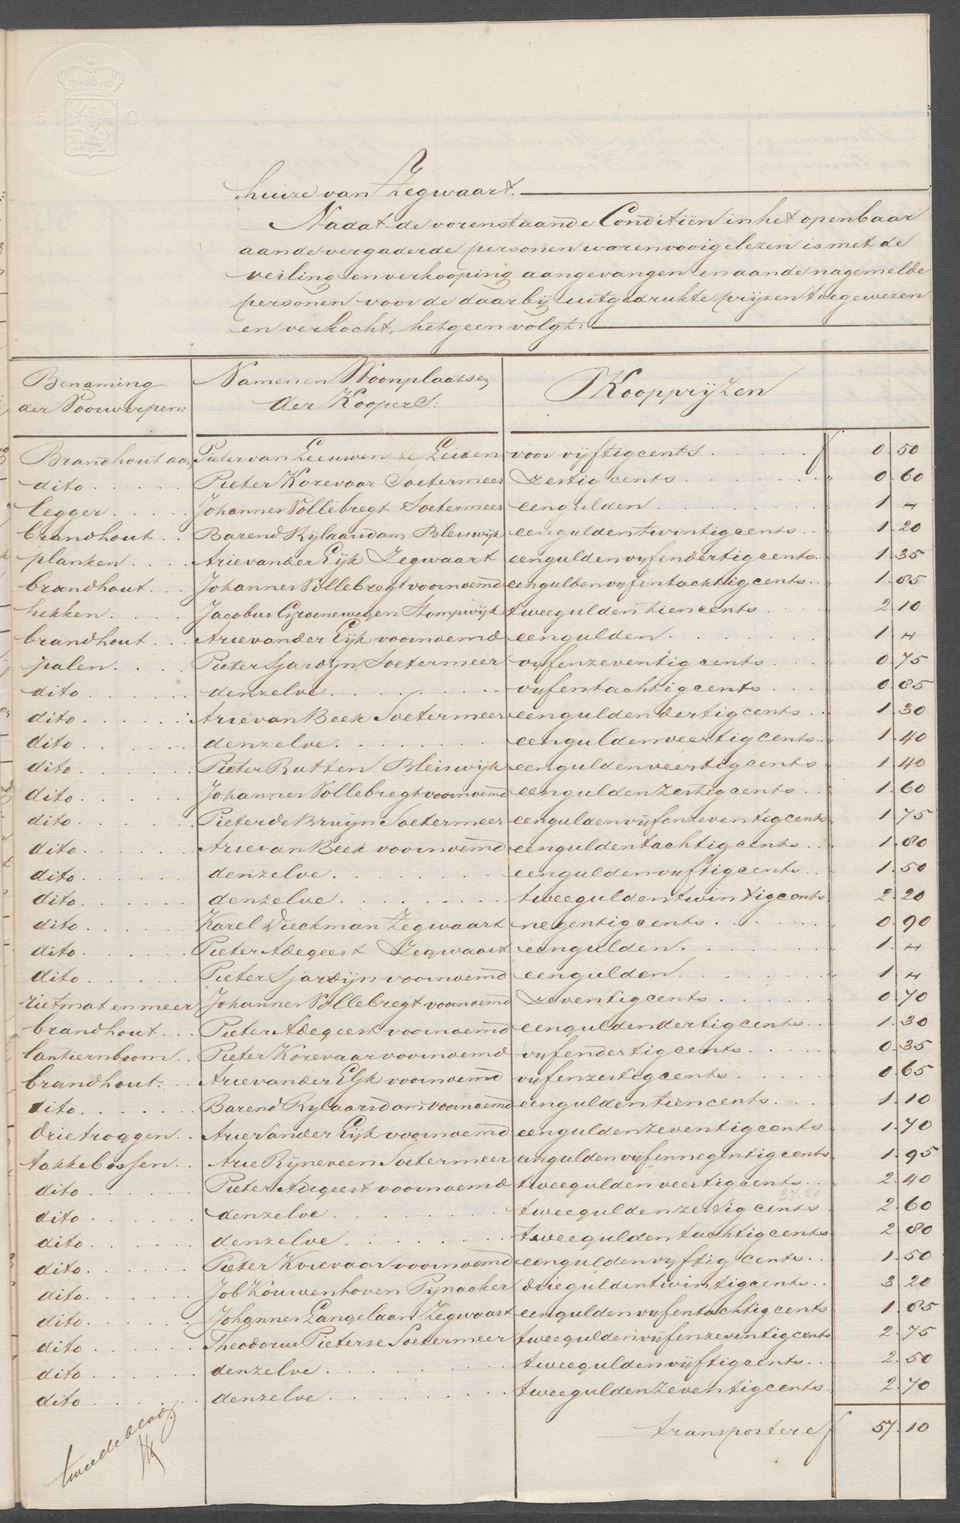 huize van Zegwaart.
Nadat de vorenstaande Conditiën in het openbaar
aan de vergaderde personen waren voorgelezen is met de
veiling en verkooping aangevangen en aan de nagemelde
personen voor de daarbij uitgedrukte prijzen toegewezen
en verkocht, hetgeen volgt:
Benaming der Voorwerpen: Namen en Woonplaatsen der Koopers: Koopprijzen
Brandhout aan Pieter van Leeuwen te Leiden voor vijftig cents f 0.50
dito Pieter Korevaar Soetermeer zestig cents " 0.60
legger Johannes Vollebregt Soetermeer een gulden " 1 "
brandhout Barend Rijlaarsdam Bleiswijk een gulden twintig cents " 1.20
planken Arie van der Eijk Zegwaart een gulden vijf en dertig cents " 1.35
brandhout Johannes Vollebregt voornoemd een gulden vijf en tachtig cents " 1.85
hekken Jacobus Groenewegen Stompwijk twee gulden tien cents " 2.10
brandhout Arie van der Eijk voornoemd een gulden " 1 "
palen Pieter Sjardijn Soetermeer vijf en zeventig cents " 0.75
dito denzelve vijf en tachtig cents " 0.85
dito Arie van Beek Soetermeer een gulden dertig cents " 1.30
dito denzelve een gulden veertig cents " 1.40
dito Pieter Rutten Bleiswijk een gulden veertig cents " 1.40
dito Johannes Vollebregt voornoemd een gulden zestig cents " 1.60
dito Pieter de Bruijn Soetermeer een gulden vijf en zeventig cents " 1.75
dito Arie van Beek voornoemd een gulden tachtig cents " 1.80
dito denzelve een gulden vijftig cents " 1.50
dito denzelve twee gulden twintig cents " 2.20
dito Karel Dieckman Zegwaart negentig cents " 0.90
dito Pieter Adegeest Zegwaart een gulden " 1 "
dito Pieter Sjardijn voornoemd een gulden " 1 "
rietmat en meer Johannes Vollebregt voornoemd zeventig cents " 0.70
brandhout Pieter Adegeest voornoemd een gulden dertig cents " 1.30
lantiernboom Pieter Korevaar voornoemd vijf en dertig cents " 0.35
brandhout Arie van der Eijk voornoemd vijf en zestig cents " 0.65
dito Barend Rijlaarsdam voornoemd een gulden tien cents " 1.10
drie troggen Arie van der Eijk voornoemd een gulden zeventig cents " 1.70
takkebossen Arie Rijneveen Soetermeer een gulden vijf en negentig cents " 1.95
dito Pieter Adegeest voornoemd twee gulden veertig cents " 2.40
dito denzelve twee gulden zestig cents " 2.60
dito denzelve twee gulden tachtig cents " 2.80
dito Pieter Korevaar voornoemd een gulden vijftig cents " 1.50
dito Job Kouwenhoven Pijnacker drie gulden twintig cents " 3.20
dito Johannes Langelaan Zegwaart een gulden vijf en tachtig cents " 1.85
dito Theodorus Pieterse Soetermeer twee gulden vijf en zeventig cents " 2.75
dito denzelve twee gulden vijftig cents " 2.50
dito denzelve twee gulden zeventig cents " 2.70
transportere f 57.10
tweede blad